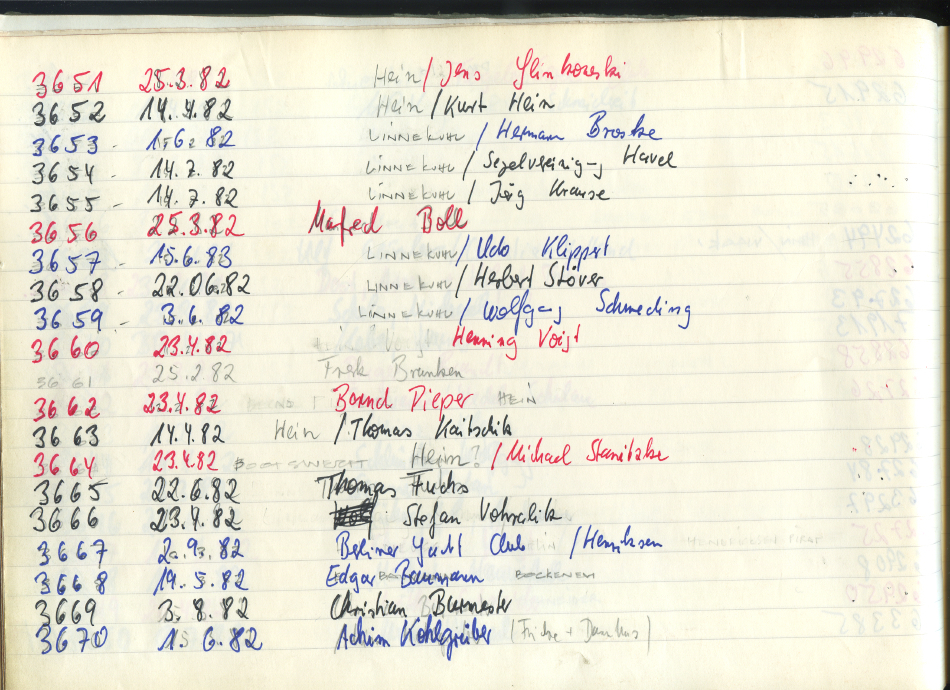 3651 25.3.82 Hein / Jens
3652 14.4.82 Hein / Kurt Hein
3653 - 1.6.82 LINNEKUHL / Hermann Broske
3654 - 14.7.82 LINNEKUHL / Havel
3655 - 14.7.82 LINNEKUHL / Jörg Krause
3656 25.3.82 Manfred Boll
3657 - 15.6.83 LINNEKUHL / Udo Klippert
3658 - 22.06.82 LINNEKUHL / Herbert Stöver
3659 - 3.6.82 LINNEKUHL / Wolfgang Schmeding
3660 23.4.82 Henning Voigt
3661 25.2.82 Frerk Brunken
3662 23.4.82 Bernd Pieper HEIN
3663 14.4.82 Hein / Thomas Kaitschik
3664 23.4.82 Hein? / Michael Stanitzke
3665 22.6.82 Thomas Fuchs
3666 23.4.82 Stefan
3667 82 Berliner Yacht Club / Henriksen
3668 19.5.82 Edgar Baumann BOCKENEM
3669 3.8.82 Christian Burmester
3670 1 6.82 Achim Kohlgreiber